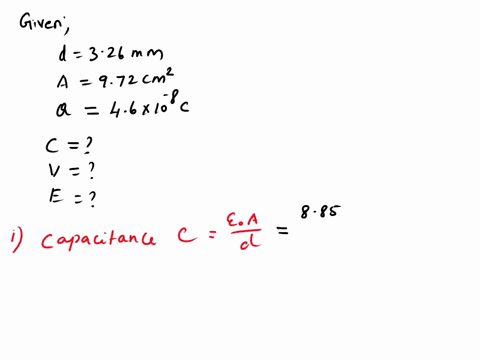 Given;
d = 3.26 mm
A = 9.72 cm²
Q = 4.6 × 10⁻⁸ C
C = ?
V = ?
E = ?
i) Capacitance C = ε₀A/d = 8.85